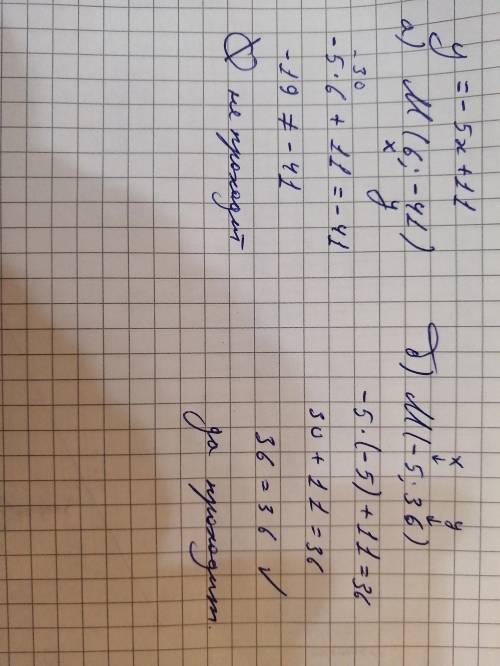 y = -5x + 11
а) M (6; -41)
x y
-30
-5·6 + 11 = -41
-19 ≠ -41
не проходит
б) M(-5; 36)
x y
-5·(-5) + 11 = 36
30 + 11 = 36
36 = 36 √
да проходит.